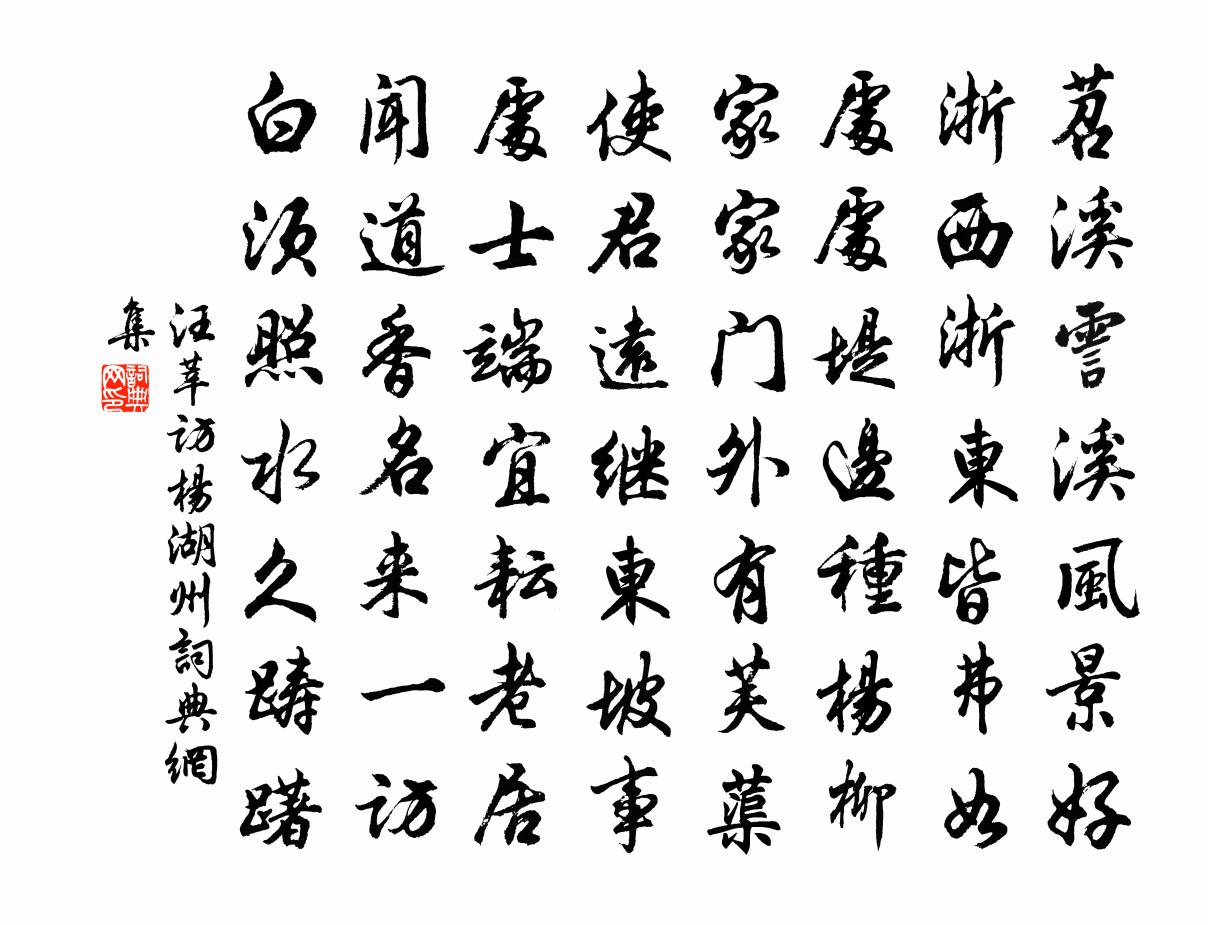 苕溪霅溪風景好
浙西浙東皆弗如
處處堤邊種楊柳
家家门外有芙蕖
使君遠继東坡事
處士端宜耘老居
聞道香名来一访
白须照水久踌躇
汪莘访楊湖州詞典網
集
詞典网印